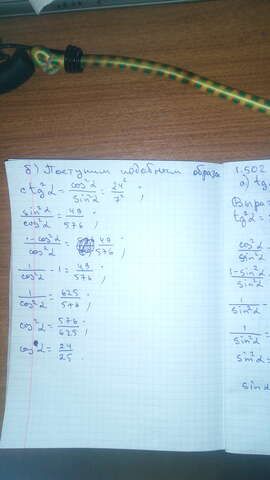 б) Поступим подобным образо
ctg²α = cos²α/sin²α = 24²/7² ;
sin²α/cos²α = 49/576 ;
1-cos²α/cos²α = 49/576 ;
1/cos²α - 1 = 49/576 ;
1/cos²α = 625/576 ;
cos²α = 576/625 ;
cos α = 24/25 .
1.502
а) tg
Выра
tg²α =
cos²
sin²
1-sin²
sin²α
1
sin²α
1
sin²α
sin²α
sin α